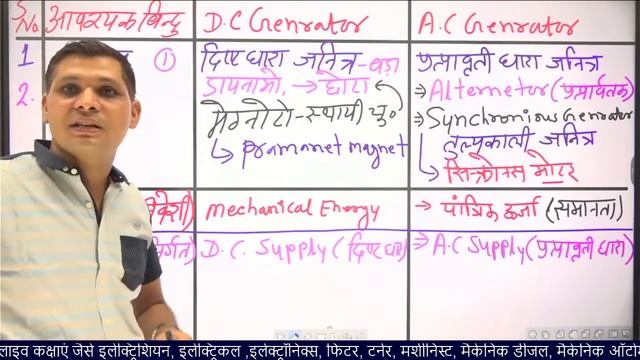 S.No. आवश्यक बिन्दु D.C Genrator A.C Genrator
1 ① दिष्ट धारा जनित्र - बड़ा प्रत्यावृती धारा जनित्र
2. डायनामो, → छोटा → Alternetor (प्रत्यावर्तक)
मेग्नेटो - स्थायी चु० → Synchronious Genrator
pramanet magnet तुल्यकाली जनित्र
सिन्क्रोनस मोटर
Mechanical Energy → यांत्रिक ऊर्जा (समानता)
D.C. Supply (दिष्ट धारा) → A.C Supply (प्रत्यावृती धारा)
लाइव कक्षाएं जैसे इलेक्ट्रिशियन, इलेक्ट्रिकल ,इलेक्ट्रॉनिक्स, फिटर, टर्नर, मशीनिस्ट, मैकेनिक डीजल, मैकेनिक ऑटो